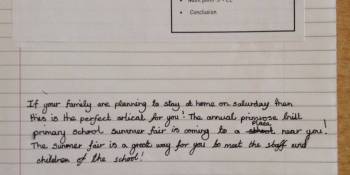 • Conclusion
If your family are planning to stay at home on saturday then
this is the perfect artical for you! The annual primrose hill
primary school summer fair is coming to a place near you!
The summer fair is a great way for you to meet the staff and
children of the school!